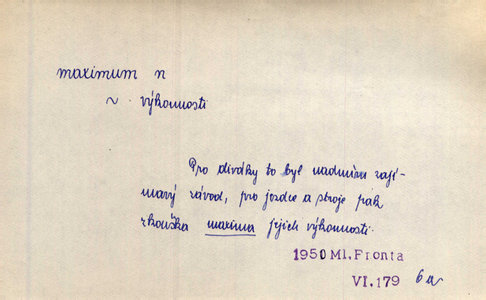 maximum n
~ výkonnosti
Pro diváky to byl nadmíru zají-
mavý závod, pro jezdce a stroje pak
zkouška maxima jejich výkonnosti.
1950 Ml. Fronta
VI.179 6a